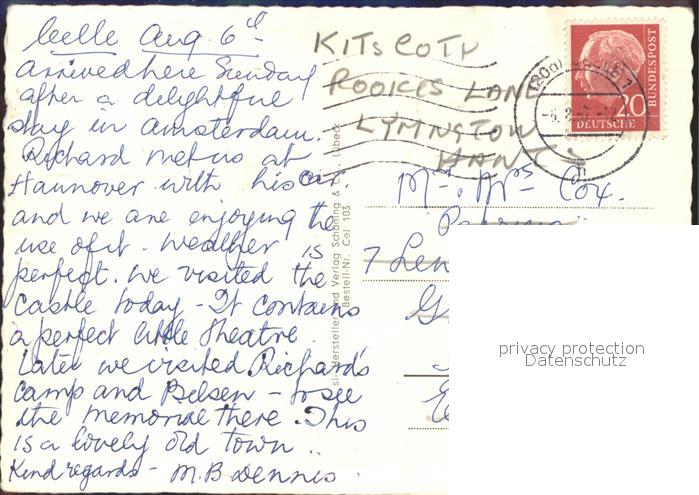 Celle Aug. 6th
Arrived here Sunday
after a delightful
stay in Amsterdam.
Richard met us at
Hannover with his car
and we are enjoying the
use of it - Weather is
perfect. We visited the
Castle today - It contains
a perfect little theatre.
Later we visited Richard's
camp and Belsen - to see
the memorial there. This
is a lovely old town ..
Kind regards - M.B Dennis.
KITS COTY
ROOKES LANE
LYMINGTON
HANTS
Mr. Mrs Cox.
7 Len
G
20
DEUTSCHE
BUNDESPOST
Hersteller und Verlag Schöning & Co., Lübeck
Bestell-Nr. Cel 103
privacy protection
Datenschutz